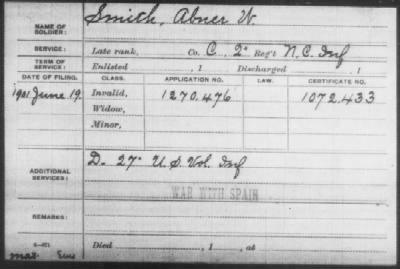 NAME OF SOLDIER: Smith, Abner W.
SERVICE: Late rank, Co. C, 2" Reg't N.C. Inf
TERM OF SERVICE: Enlisted , 1 Discharged , 1
DATE OF FILING. CLASS. APPLICATION NO. LAW. CERTIFICATE NO.
1901 June 19. Invalid, 1270.476 1072.433
Widow,
Minor,
ADDITIONAL SERVICES: D- 27" U.S. Vol. Inf
WAR WITH SPAIN
REMARKS:
Died , 1 , at